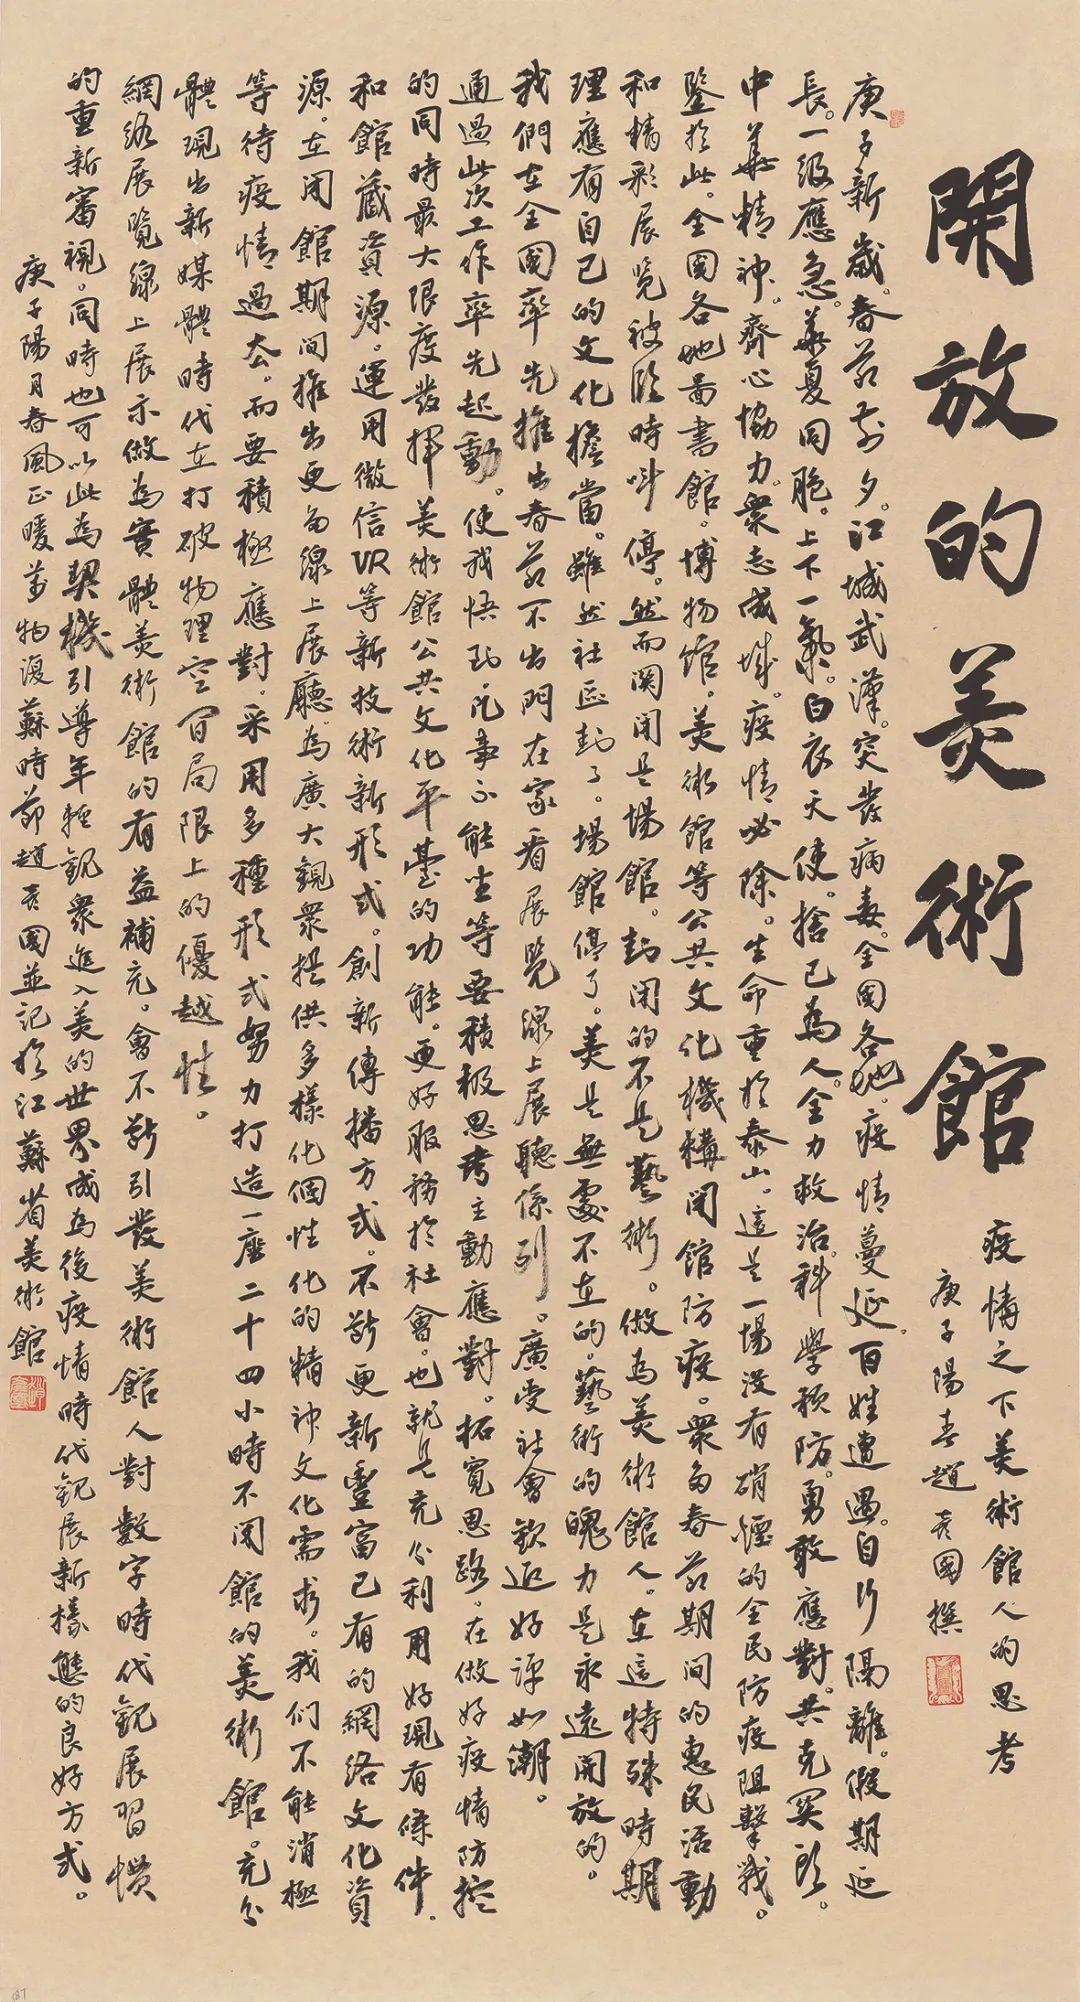 開放的美術館
疫情之下美術館人的思考
庚子陽春趙彥國撰
庚子新歲。春節前夕。江城武漢。突發病毒。全國各地。疫情蔓延。百姓遭遇。自行隔離。假期延
長。一級應急。華夏同胞。上下一氣。白衣天使。捨己為人。全力救治。科學預防。勇敢應對。共克。
中華精神。齊心協力。衆志成城。疫情必除。生命重於泰山。這是一場没有硝煙的全民防疫阻擊戰。
鑒於此。全國各地圖書館。博物館。美術館等公共文化機構閉館防疫。衆多春節期间的惠民活動
和精彩展览被臨時叫停。然而関閉是場館。封闭的不是藝術。做為美術館人。在這特殊時期
理應有自己的文化擔當。雖然社區封了。場館停了。美是無處不在的。藝術的魄力是永遠開放的。
我們在全國率先推出春節不出門在家看展覽線上展聽係列。廣受社會歡迎好评如潮。
通過此次工作率先起動。使我悟到。凡事不能坐等要積极思考主動應對。拓寬思路。在做好疫情防控
的同時最大限度發揮美術館公共文化平臺的功能。更好服務於社會。也就是充分利用好現有條件。
和館藏資源。運用微信VR等新技術新形式。創新傳播方式。不斷更新豐富已有的網络文化資
源。在闭館期间推出更多線上展廳。為廣大觀衆提供多樣化個性化的精神文化需求。我们不能消極
等待疫情過去。而要積極應對。采用多種形式努力打造一座二十四小時不関館的美術館。充分
體現出新媒體時代在打破物理空间局限上的優越性。
網络展覽線上展示做為實體美術館的有益補充。會不斷引發美術館人對數字時代觀展習慣
的重新審視。同時也可以此為契機引導年輕觀衆進入美的世界成為後疫情時代觀展新樣態的良好方式。
庚子陽月春風正暖萬物復蘇時節趙彥國並記於江蘇省美術館